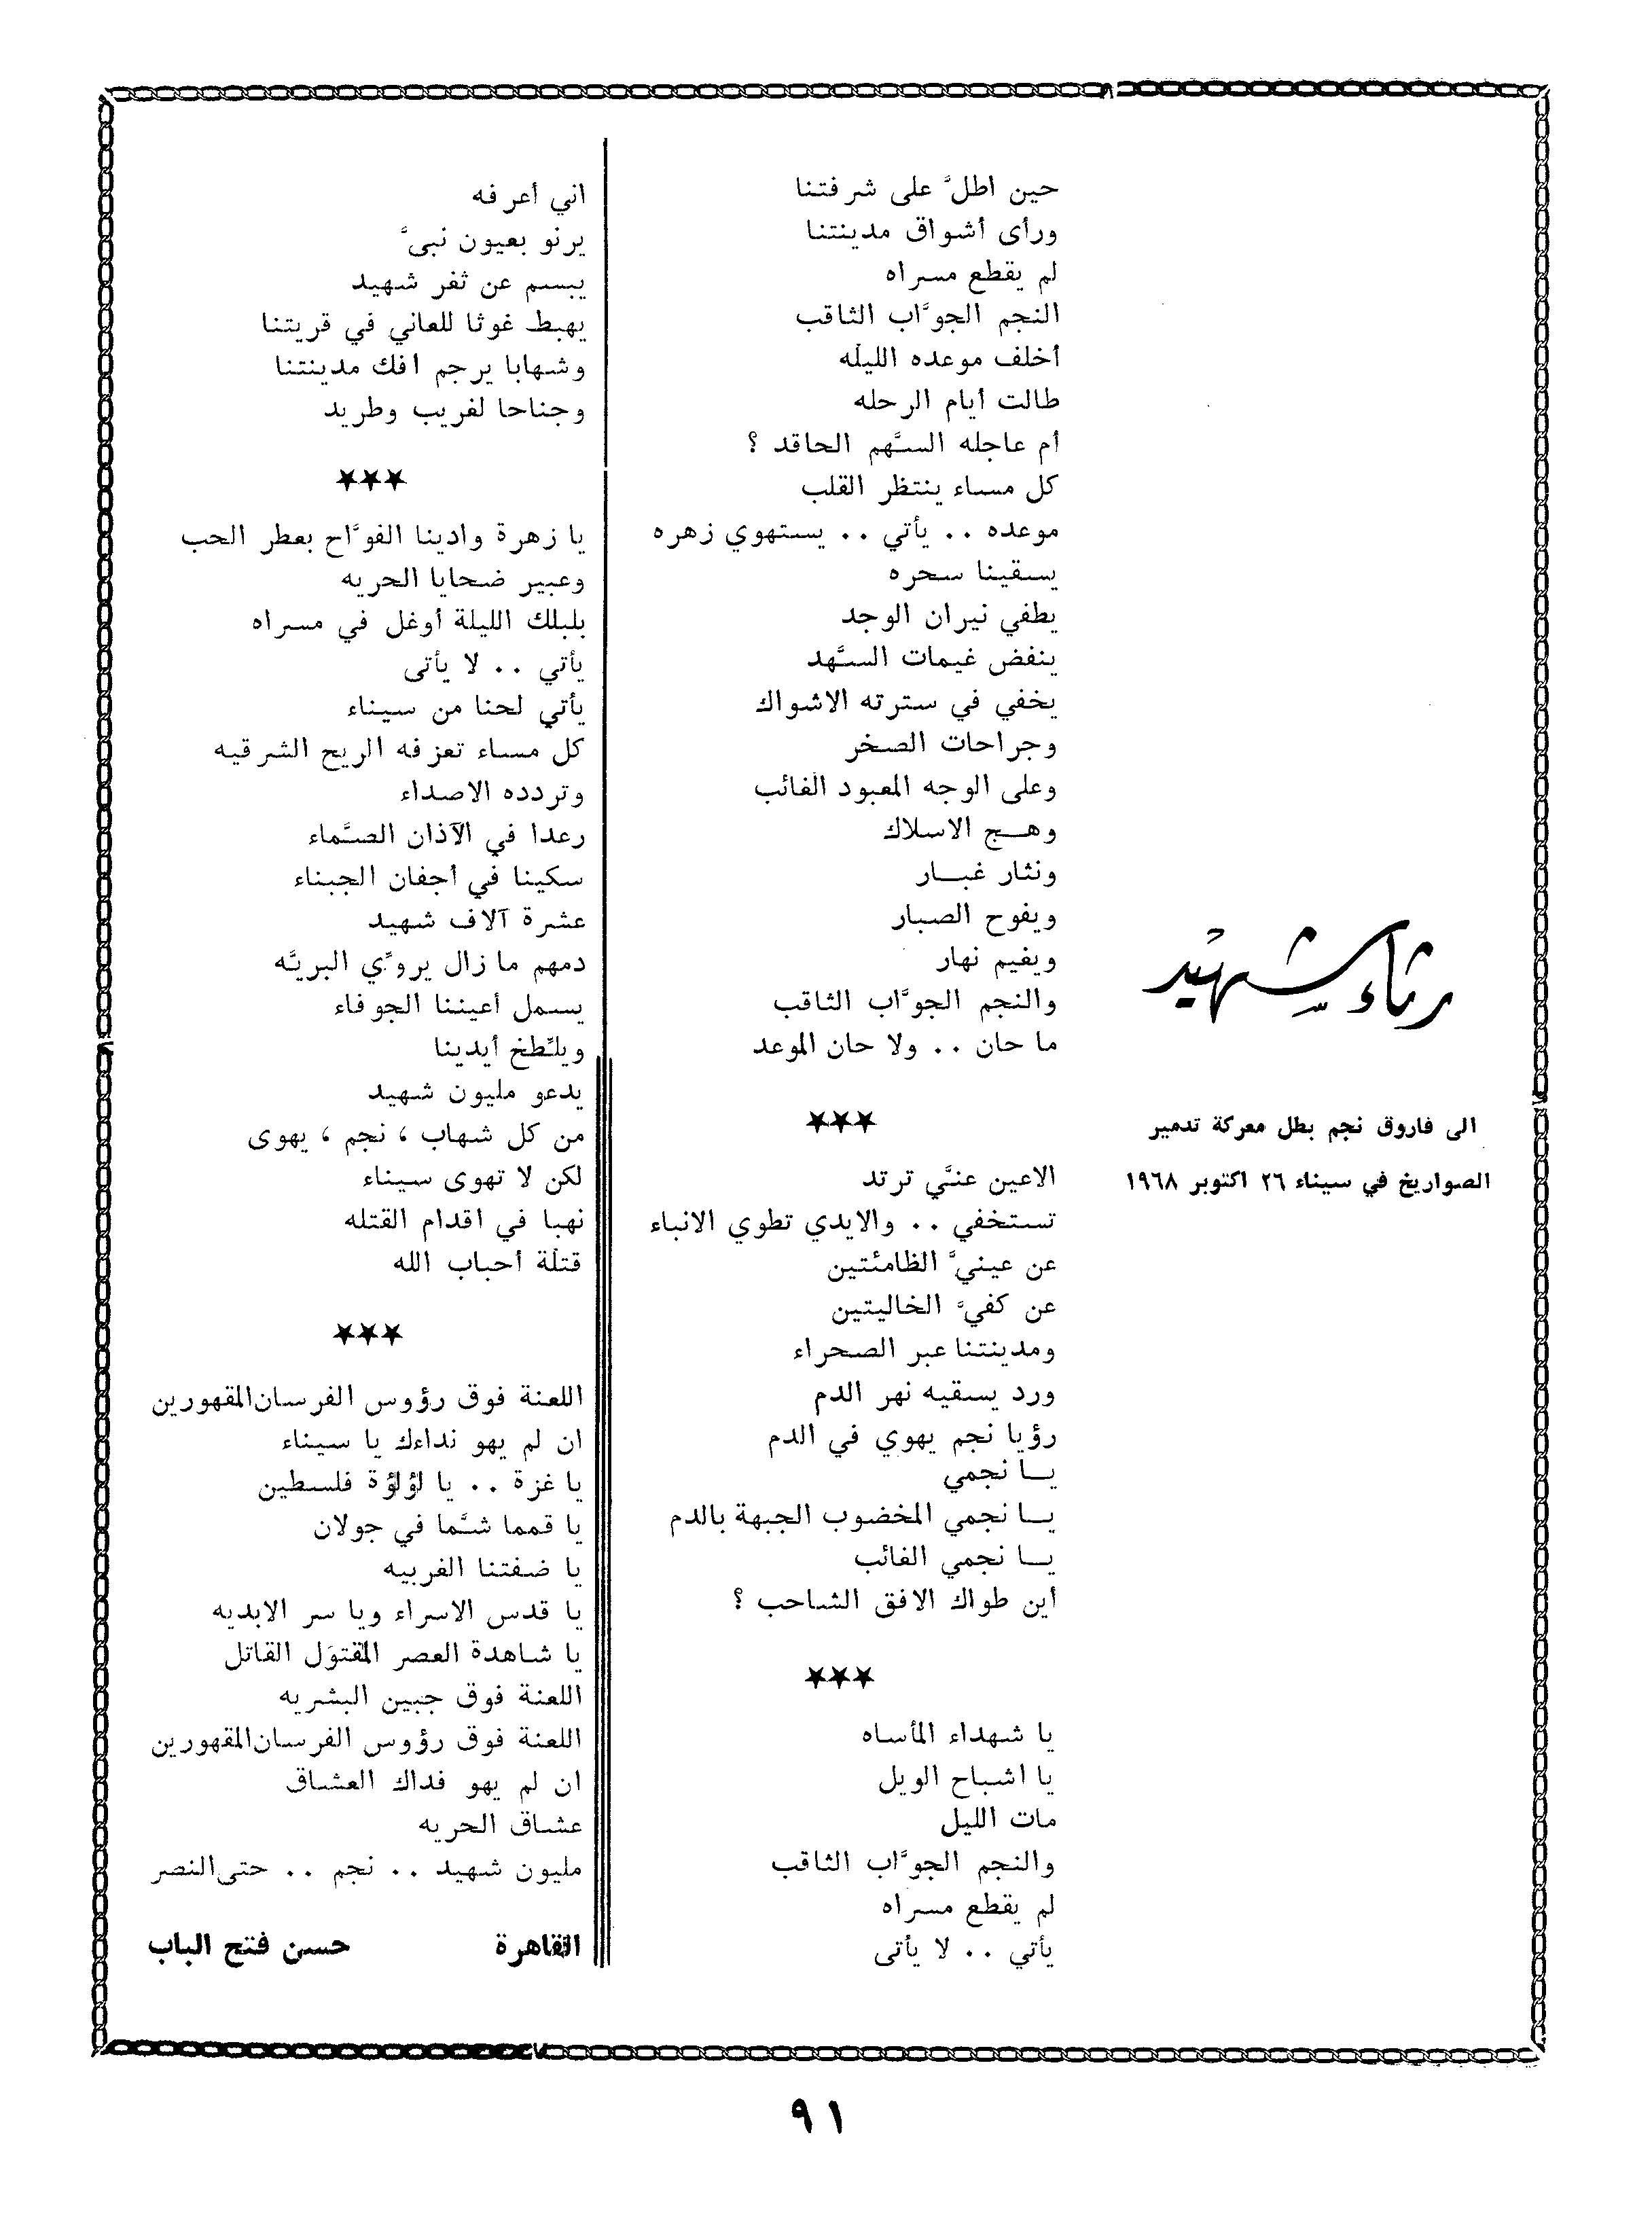 رثاء شهيد
الى فاروق نجم بطل معركة تدمير
الصواريخ في سيناء ٢٦ اكتوبر ١٩٦٨
حين اطلَّ على شرفتنا
ورأى أشواق مدينتنا
لم يقطع مسراه
النجم الجوَّاب الثاقب
أخلف موعده الليله
طالت أيام الرحله
أم عاجله السَّهم الحاقد ؟
كل مساء ينتظر القلب
موعده .. يأتي .. يستهوي زهره
يسقينا سحره
يطفي نيران الوجد
ينفض غيمات السَّهد
يخفي في سترته الاشواك
وجراحات الصخر
وعلى الوجه المعبود الغائب
وهج الاسلاك
ونثار غبار
ويفوح الصبار
ويغيم نهار
والنجم الجوَّاب الثاقب
ما حان .. ولا حان الموعد
★★★
الاعين عنَّي ترتد
تستخفي .. والايدي تطوي الانباء
عن عينيَّ الظامئتين
عن كفيَّ الخاليتين
ومدينتنا عبر الصحراء
ورد يسقيه نهر الدم
رؤيا نجم يهوي في الدم
يا نجمي
يا نجمي المخضوب الجبهة بالدم
يا نجمي الغائب
أين طواك الافق الشاحب ؟
★★★
يا شهداء المأساه
يا اشباح الويل
مات الليل
والنجم الجوَّاب الثاقب
لم يقطع مسراه
يأتي .. لا يأتى
اني أعرفه
يرنو بعيون نبىَّ
يبسم عن ثغر شهيد
يهبط غوثا للعاني في قريتنا
وشهابا يرجم افك مدينتنا
وجناحا لغريب وطريد
★★★
يا زهرة وادينا الفوَّاح بعطر الحب
وعبير ضحايا الحريه
بلبلك الليلة أوغل في مسراه
يأتي .. لا يأتى
يأتي لحنا من سيناء
كل مساء تعزفه الريح الشرقيه
وتردده الاصداء
رعدا في الآذان الصَّماء
سكينا في أجفان الجبناء
عشرة آلاف شهيد
دمهم ما زال يروِّي البريَّه
يسمل أعيننا الجوفاء
ويلطِّخ أيدينا
يدعو مليون شهيد
من كل شهاب ، نجم ، يهوى
لكن لا تهوى سيناء
نهبا في اقدام القتله
قتلة أحباب الله
★★★
اللعنة فوق رؤوس الفرسان المقهورين
ان لم يهو نداءك يا سيناء
يا غزة .. يا لؤلؤة فلسطين
يا قمما شمَّا في جولان
يا ضفتنا الغربيه
يا قدس الاسراء ويا سر الابديه
يا شاهدة العصر المقتول القاتل
اللعنة فوق جبين البشريه
اللعنة فوق رؤوس الفرسان المقهورين
ان لم يهو فداك العشاق
عشاق الحريه
مليون شهيد .. نجم .. حتى النصر
القاهرة حسن فتح الباب
٩١